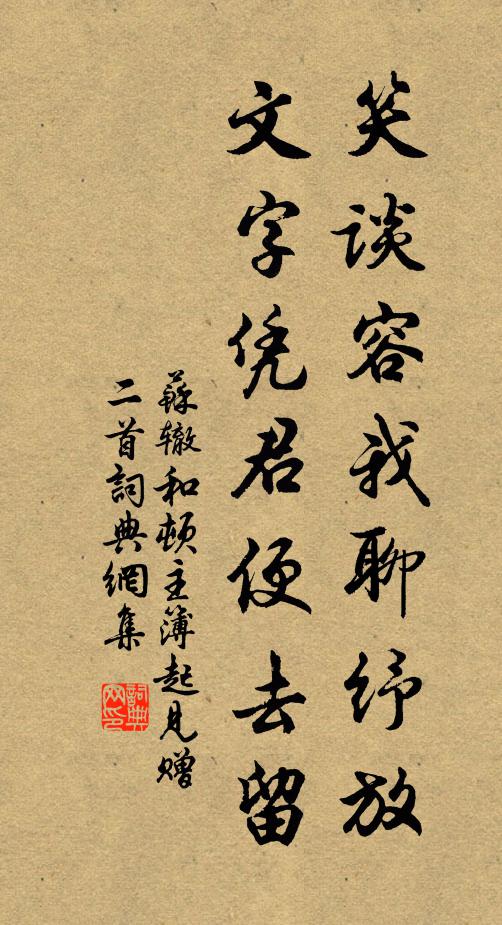 笑談容我聊紓放
文字凭君便去留
蘇轍和頓主簿起見贈
二首詞典網集
詞典
网印